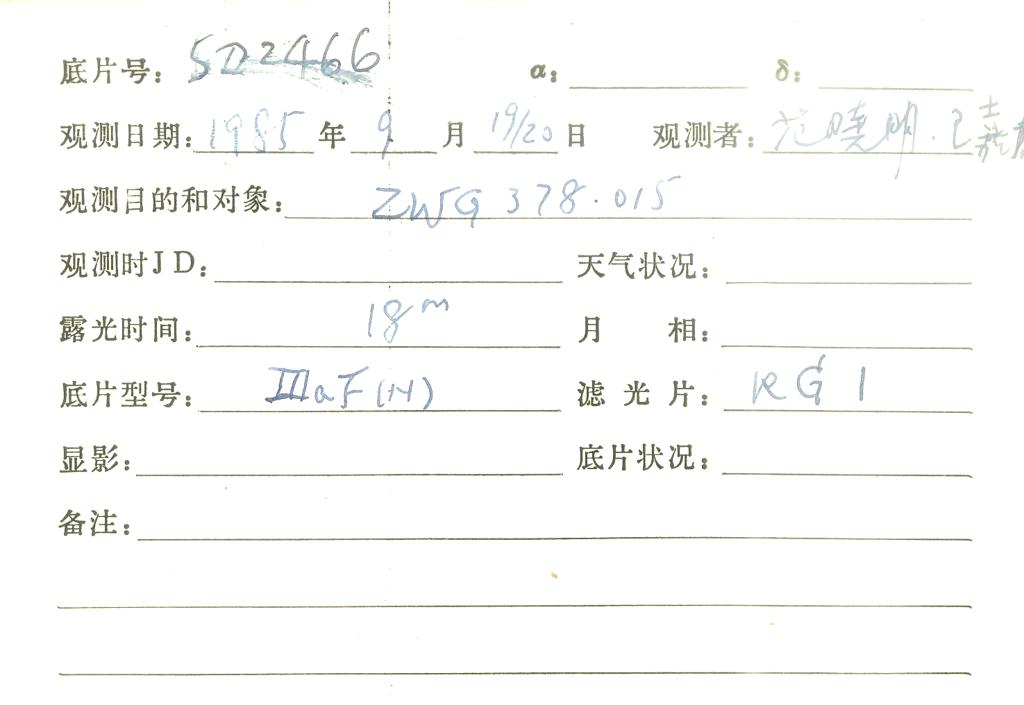 底片号: SD2466 α: δ:
观测日期: 1985 年 9 月 19/20 日 观测者: 范晓明.
观测目的和对象: ZWG 378.015
观测时JD: 天气状况:
露光时间: 18m 月 相:
底片型号: IIIaF(H) 滤光片: RG1
显影: 底片状况:
备注: